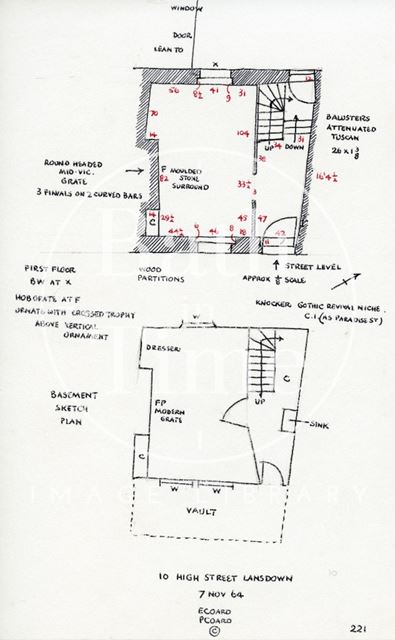 WINDOW
DOOR
LEAN TO
X
56
8½
41
9
31
12
70
14
104
UP
DOWN
34
31
BALUSTERS
ATTENUATED
TUSCAN
26 x 1 3/8
ROUND HEADED
MID-VIC.
GRATE
3 FINIALS ON 2 CURVED BARS
F MOULDED
STONE
SURROUND
82
36
33½
3
16'4½
14
C
29½
45
47
42
44½
6
41
8
18
11
FIRST FLOOR
BW AT X
WOOD
PARTITIONS
STREET LEVEL
APPROX ⅛ SCALE
HOB GRATE AT F
ORNATE WITH CROSSED TROPHY
ABOVE VERTICAL
ORNAMENT
KNOCKER GOTHIC REVIVAL NICHE.
C.I. (AS PARADISE ST)
W
DRESSER
BASEMENT
SKETCH
PLAN
FP
MODERN
GRATE
UP
C
SINK
C
W
W
VAULT
Bath in Time
IMAGE LIBRARY
10 HIGH STREET LANSDOWN
7 NOV 64
ECOARD
PCOARD
©
221